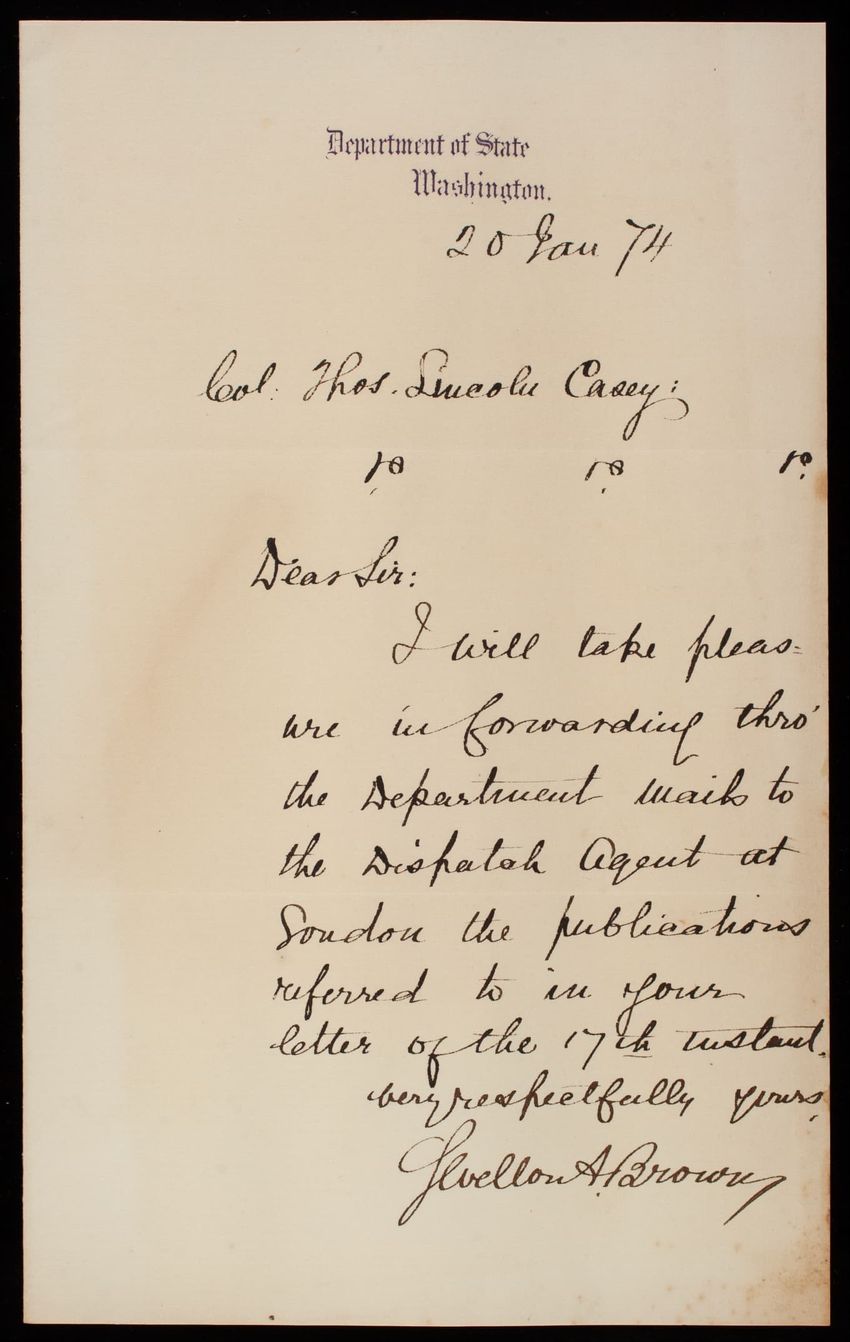 Department of State
Washington.
20 Jan 74
Col. Thos. Lincoln Casey:
Dear Sir:
I will take pleas-
ure in forwarding thro'
the Department mails to
the Dispatch Agent at
London the publications
referred to in your
letter of the 17th instant.
Very respectfully yours,
Sevellon A. Brown